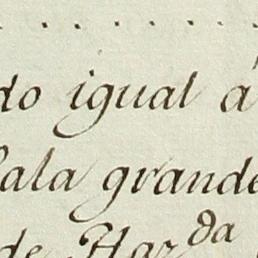 do igual á
Sala grande
de Haz.da